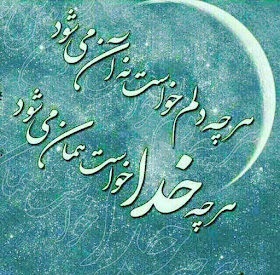 هرچه دلم خواست نه آن می شود
هرچه خدا خواست همان می شود